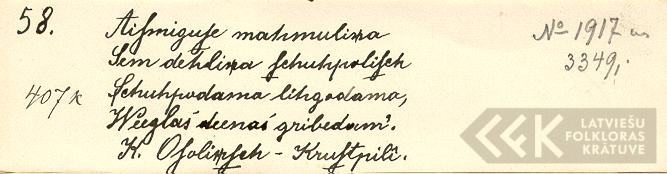 58.
Aismiguse mahmuliņa
Sem dehliņa schuhpolisch
407k Schuhpodama lihgodama,
Weeglas deenas gribedam'.
K. Osoliņsch - Krustpilī.
No 1917 un
3349,
LATVIEŠU
FOLKLORAS
KRĀTUVE